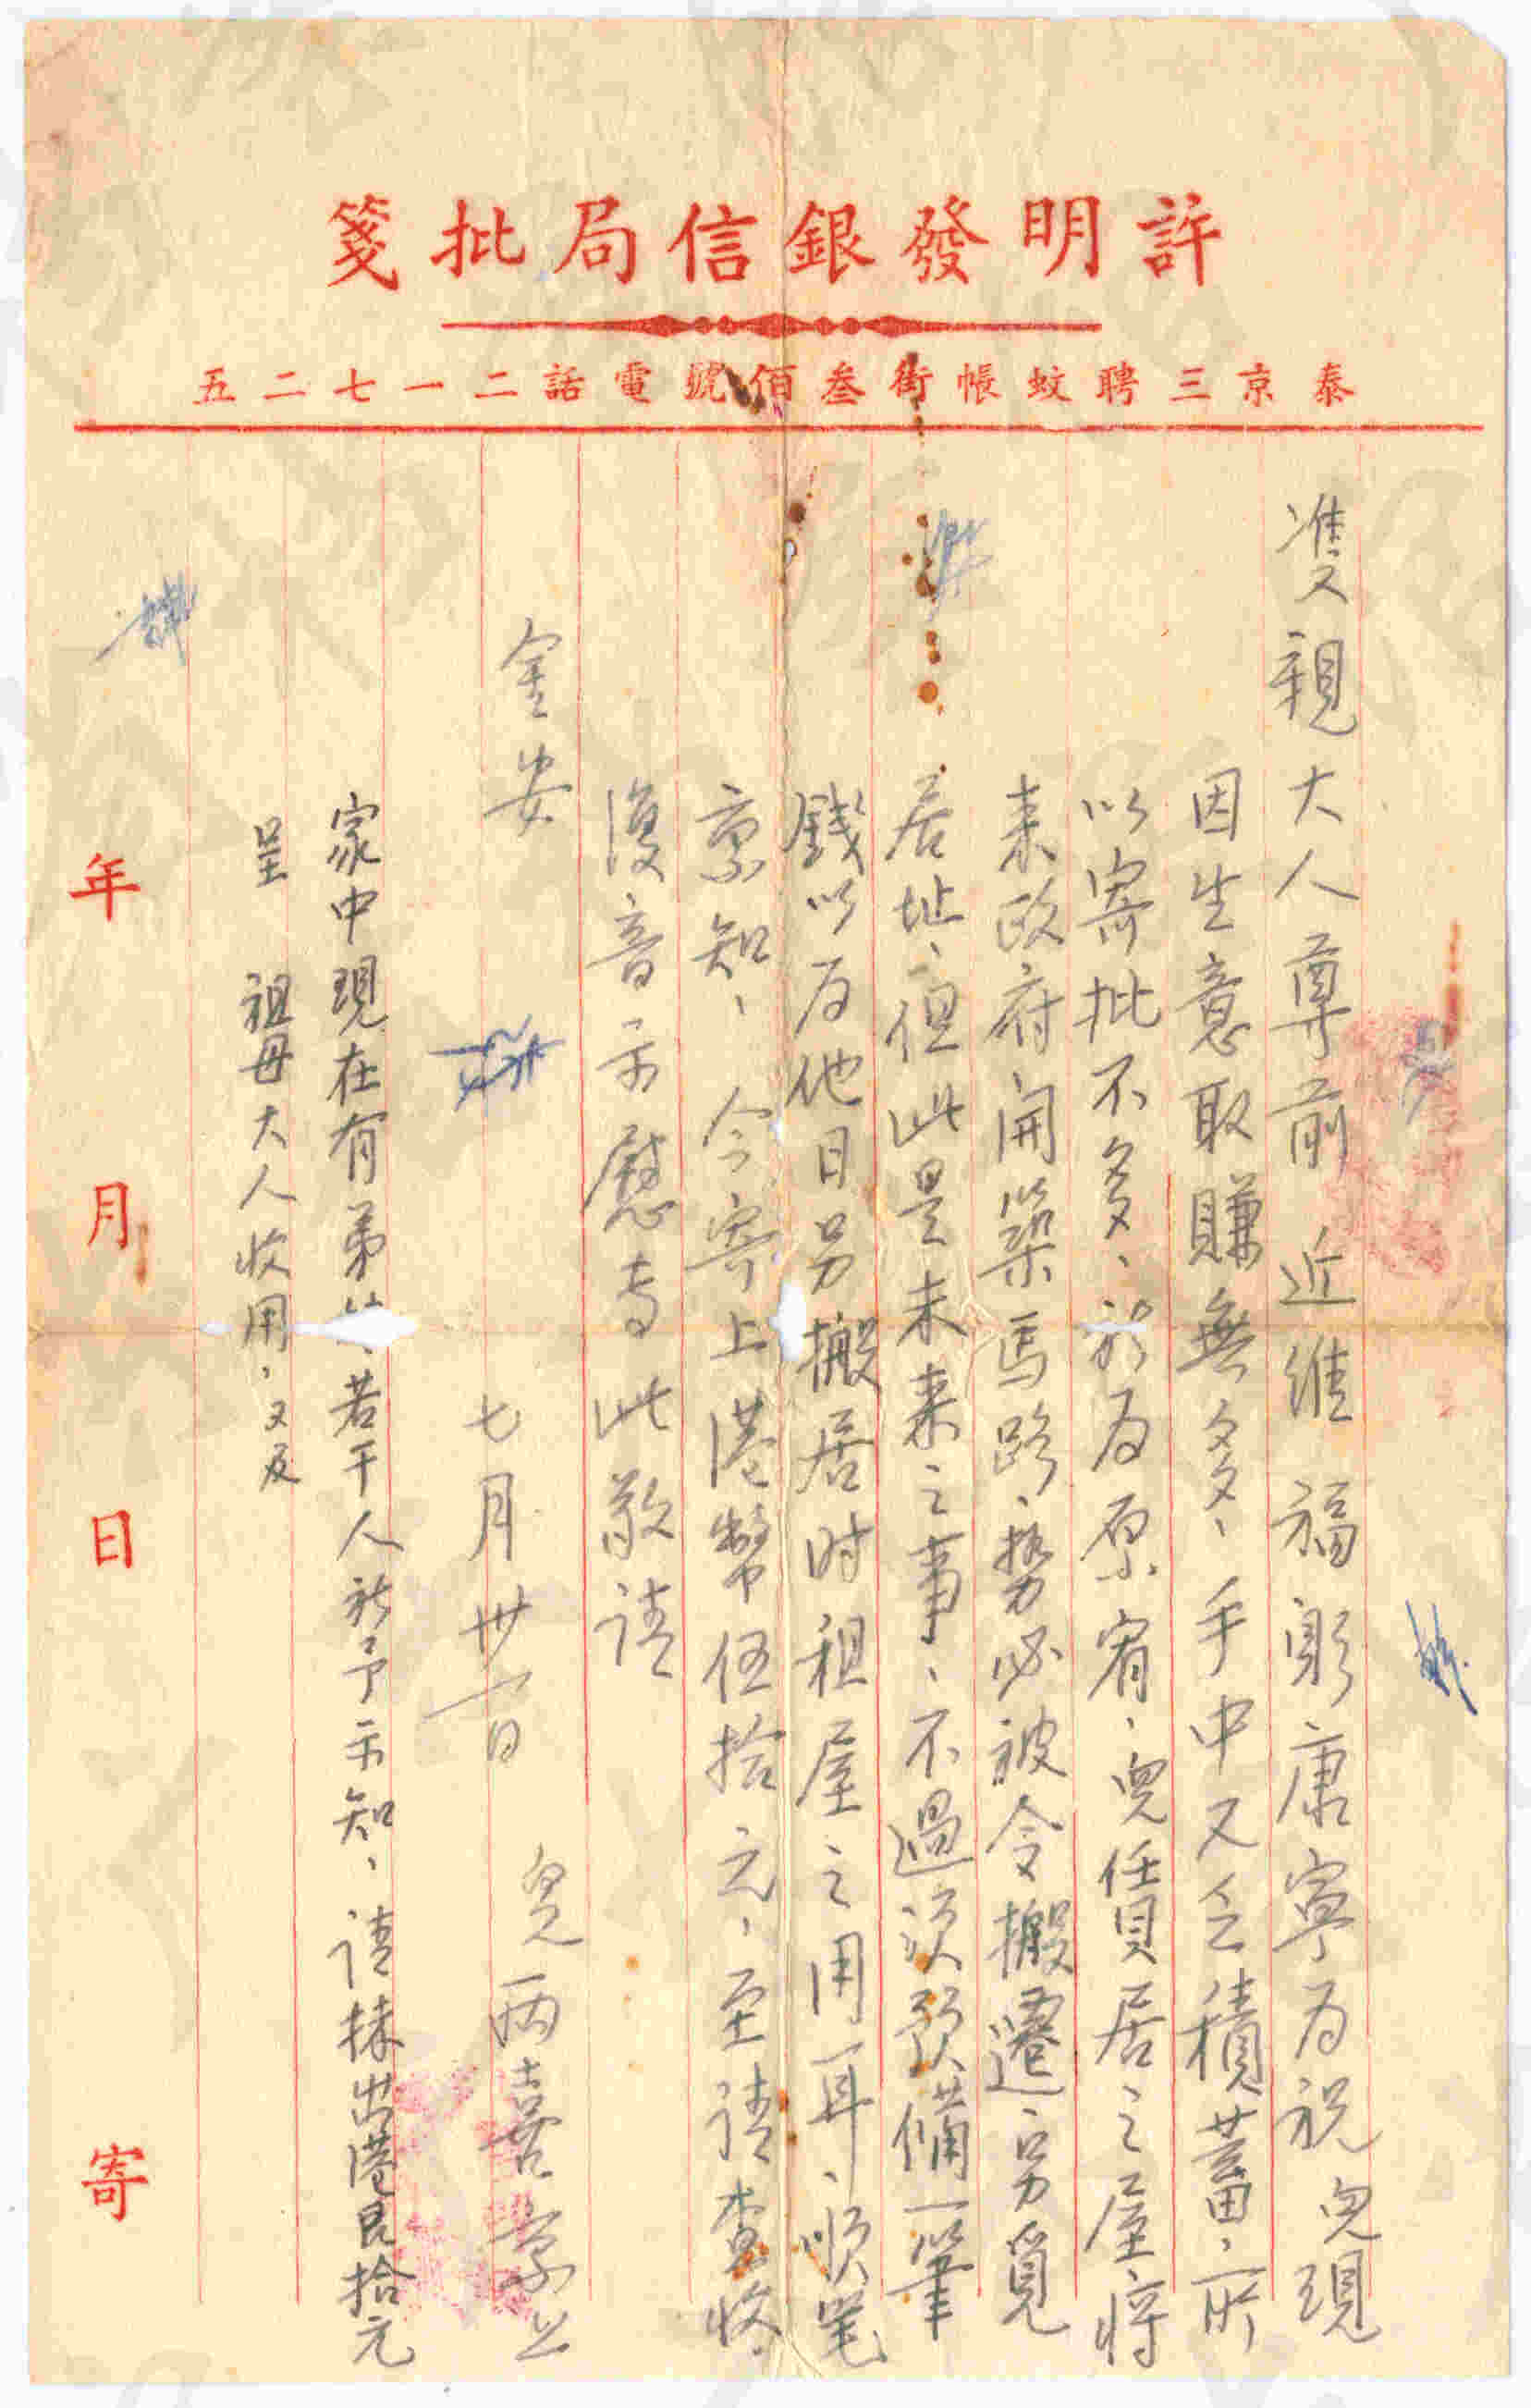 許明發銀信局批箋
泰京三聘蚊帳街叁佰號電話二一七二五
雙親大人尊前 近維 福躬康寧為祝 兒現
因生意取賺無多、手中又乏積蓄、所
以寄批不多、祈為原宥、兒任賃居之屋將
來政府開築馬路、勢必被令搬遷、另覓
居址、但此是未來之事、不過須預備一筆
錢以為他日另搬居时租屋之用耳、順筆
稟知、今寄上港幣伍拾元、至請查收、
復音示慰 专此敬請
金安
七月卅一日 兒兩喜稟上
家中現在有弟 若干人祈予示知、請抹出港艮拾元
呈 祖母大人收用、又及
年 月 日 寄